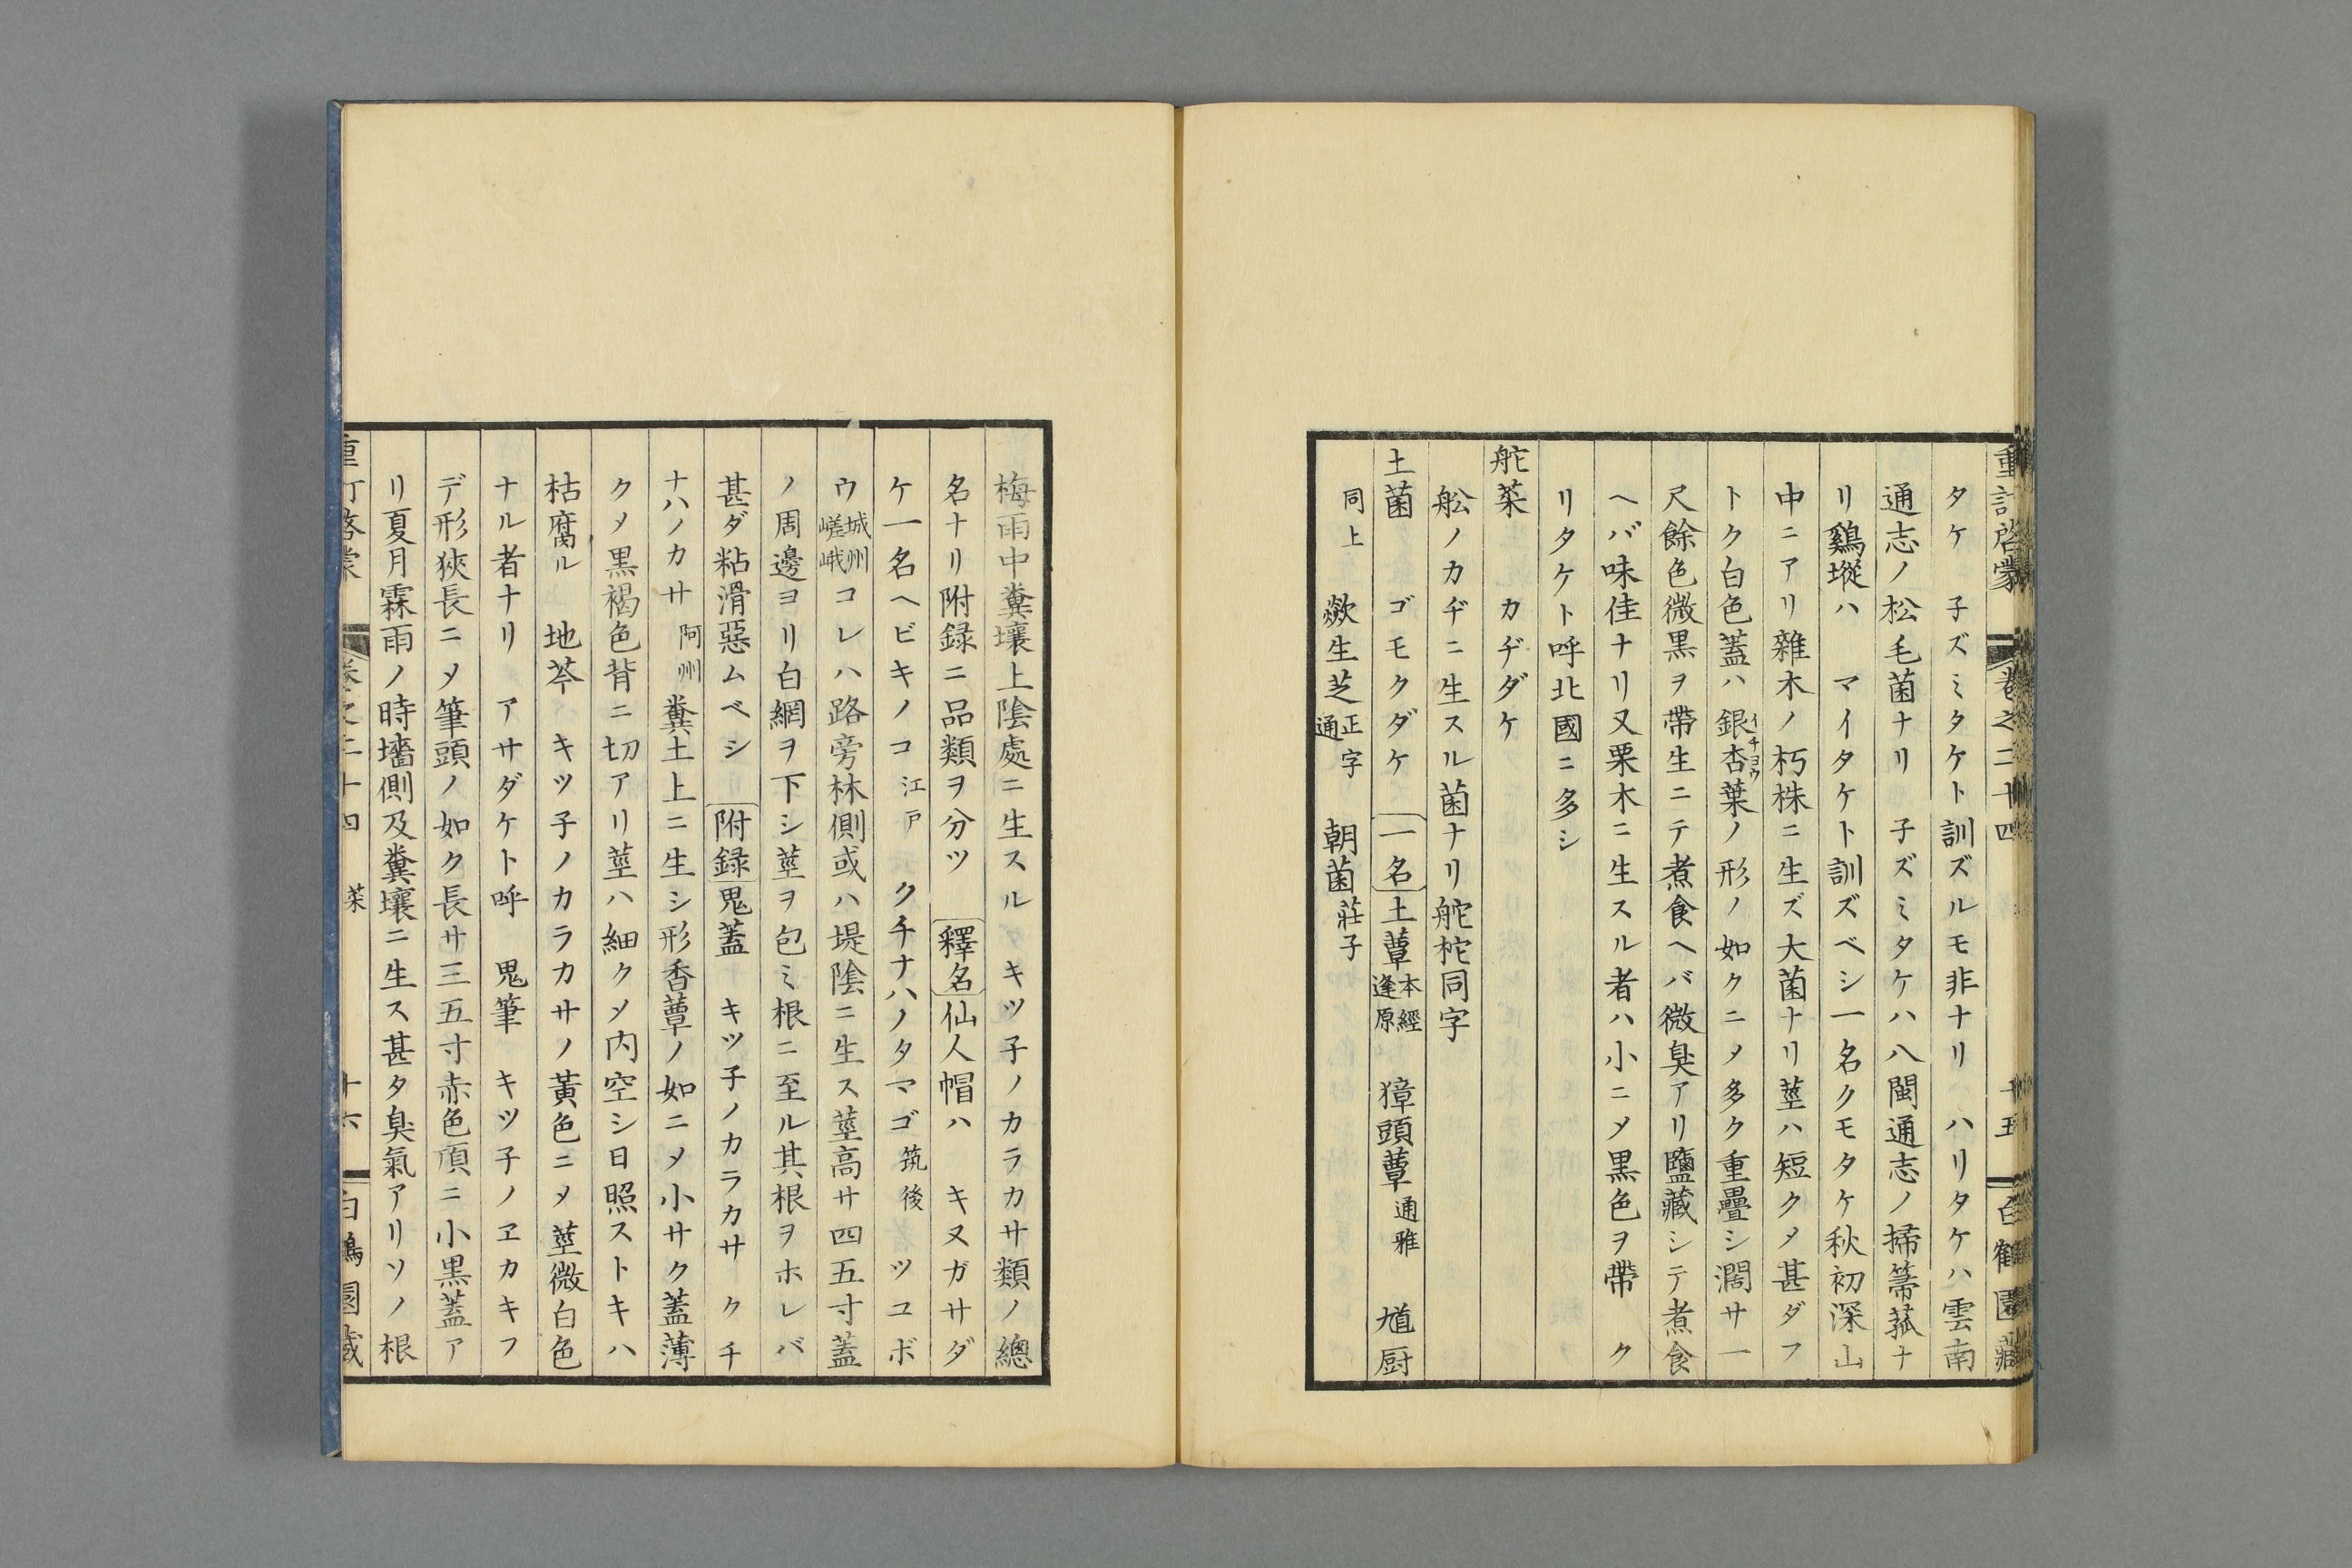 重訂啓蒙 卷之二十四 十五 白鶴園藏
タケ 子ズミタケト訓ズルモ非ナリ ハリタケハ雲南
通志ノ松毛菌ナリ 子ズミタケハ八閩通志ノ掃箒菰ナ
リ鷄㙡ハ マイタケト訓ズベシ一名クモタケ秋初深山
中ニアリ雜木ノ朽株ニ生ズ大菌ナリ莖ハ短クメ甚ダフ
トク白色蓋ハ銀杏葉イチヨウノ形ノ如クニメ多ク重疊シ濶サ一
尺餘色微黒ヲ帶生ニテ煮食ヘバ微臭アリ鹽藏シテ煮食
ヘバ味佳ナリ又栗木ニ生スル者ハ小ニメ黒色ヲ帶 ク
リタケト呼北國ニ多シ
舵菜 カヂダケ
舩ノカヂニ生スル菌ナリ舵柁同字
土菌 ゴモクダケ 一名土蕈本經逢原 獐頭蕈通雅 馗厨
同上 歘生芝正字通 朝菌莊子
梅雨中糞壤上陰處ニ生スルキツ子ノカラカサ類ノ總
名ナリ附録ニ品類ヲ分ツ 釋名仙人帽ハ キヌガサダ
ケ一名ヘビキノコ江戸 クチナハノタマゴ筑後 ツユボ
ウ城州嵯峨コレハ路旁林側或ハ堤陰ニ生ス莖高サ四五寸蓋
ノ周邊ヨリ白網ヲ下シ莖ヲ包ミ根ニ至ル其根ヲホレバ
甚ダ粘滑惡ムベシ 附録鬼蓋 キツ子ノカラカサ クチ
ナハノカサ阿州糞土上ニ生シ形香蕈ノ如ニメ小サク蓋薄
クメ黒褐色背ニ切アリ莖ハ細クメ内空シ日照ストキハ
枯腐ル 地芩 キツ子ノカラカサノ黃色ニメ莖微白色
ナル者ナリ アサダケト呼 鬼筆 キツ子ノヱカキフ
デ形狹長ニメ筆頭ノ如ク長サ三五寸赤色頂ニ小黒蓋ア
リ夏月霖雨ノ時墻側及糞壤ニ生ス甚タ臭氣アリソノ根
重訂啓蒙 卷之二十四 菜 十六 白鶴園藏